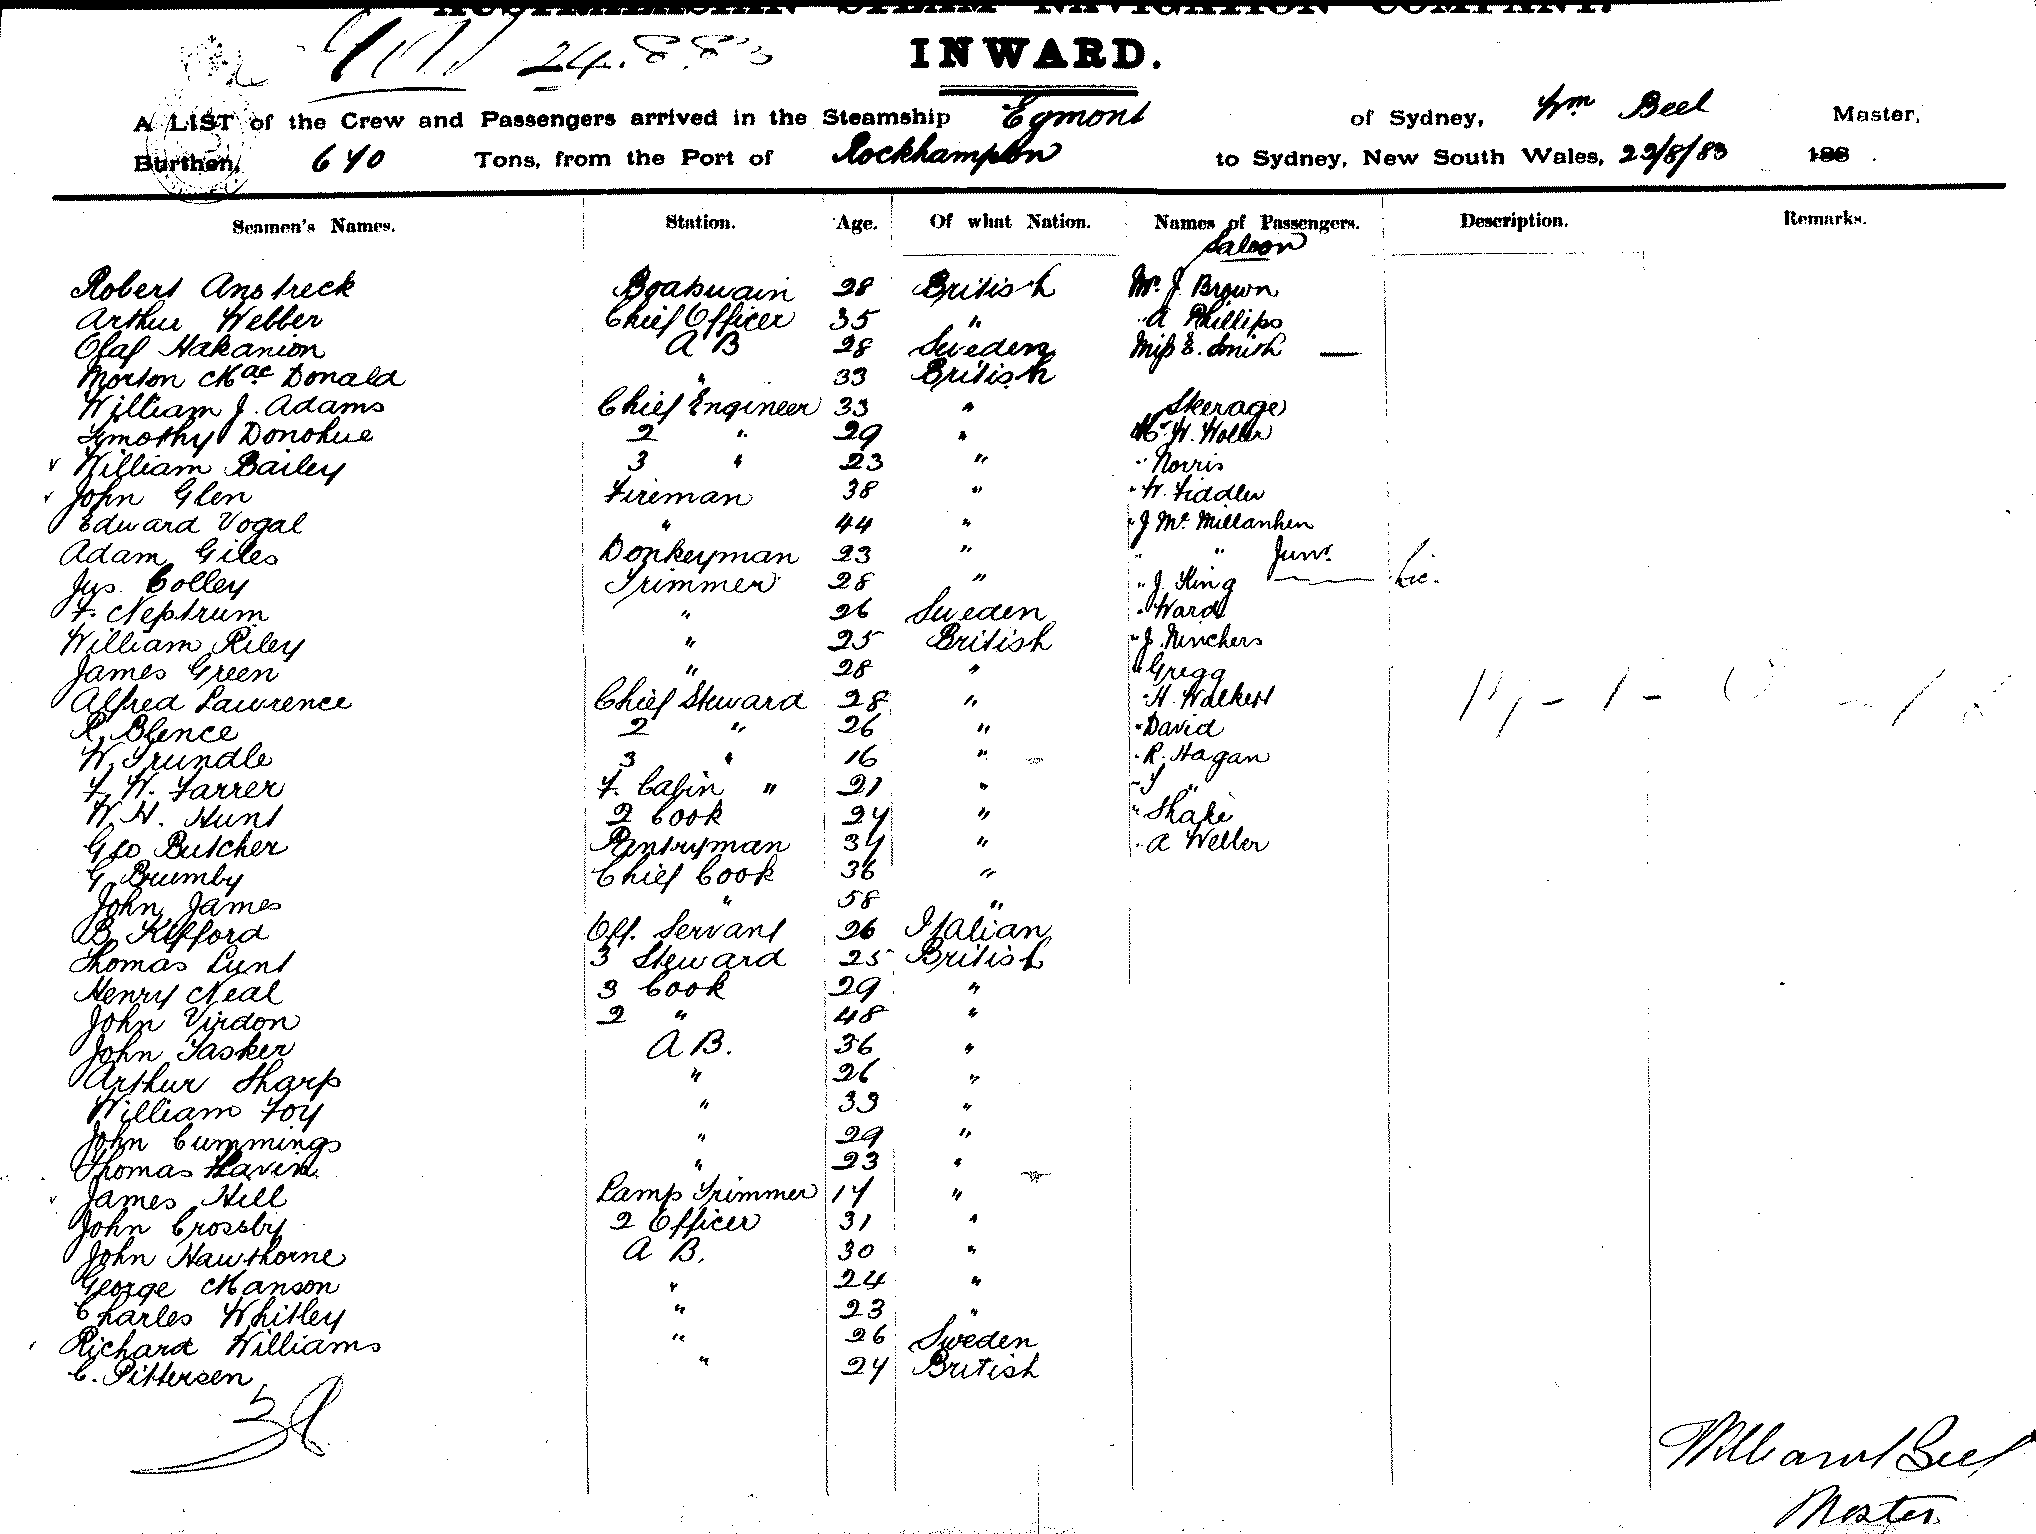 AUSTRALASIAN STEAM NAVIGATION COMPANY.
24.8.83
INWARD.
A LIST of the Crew and Passengers arrived in the Steamship Egmont of Sydney, Wm Beel Master,
Burthen, 640 Tons, from the Port of Rockhampton to Sydney, New South Wales, 23/8/83 188 .
Seamen's Names. Station. Age. Of what Nation. Names of Passengers. Description. Remarks.
Saloon
Robert Anstreck Boatswain 28 British Mr. J. Brown
Arthur Webber Chief Officer 35 " " A Phillips
Olaf Hakanion A B 28 Sweden Miss E. Smith —
Morton MacDonald " 33 British
William J. Adams Chief Engineer 33 " Sterage
Timothy Donohue 2 " 29 " Mr W. Woller
William Bailey 3 " 23 " " Norris
John Glen Fireman 38 " " W. Fiddler
Edward Vogal " 44 " " J Mc Millanhen
Adam Giles Donkeyman 23 " " " Junr
Jas. Colley Trimmer 28 " " J. King
F. Neptrum " 26 Sweden " Ward
William Riley " 25 British " J. Ninchers
James Green " 28 " " Gregg
Alfred Lawrence Chief Steward 28 " " H. Walker
R. Blence 2 " 26 " " David
W. Trundle 3 " 16 " " R. Hagan
F. W. Farrer F. Cabin " 21 " " J "
W. H. Hunt 2 Cook 24 " " Shake
Geo Butcher Pantryman 34 " " A Weller
G. Brumby Chief Cook 36 "
John James " 58 "
B. Kifford Off. Servant 26 Italian
Thomas Lunt 3 Steward 25 British
Henry Neal 3 Cook 29 "
John Virdon 2 " 48 "
John Tasker A B. 36 "
Arthur Sharp " 26 "
William Foy " 33 "
John Cummings " 29 "
Thomas " 23 "
James Hill Lamp Trimmer 17 "
John Crossby 2 Officer 31 "
John Hawthorne A B. 30 "
George Manson " 24 "
Charles Whitley " 23 "
Richard Williams " 26 Sweden
C. Pittersen " 24 British
38
William Beel
Master